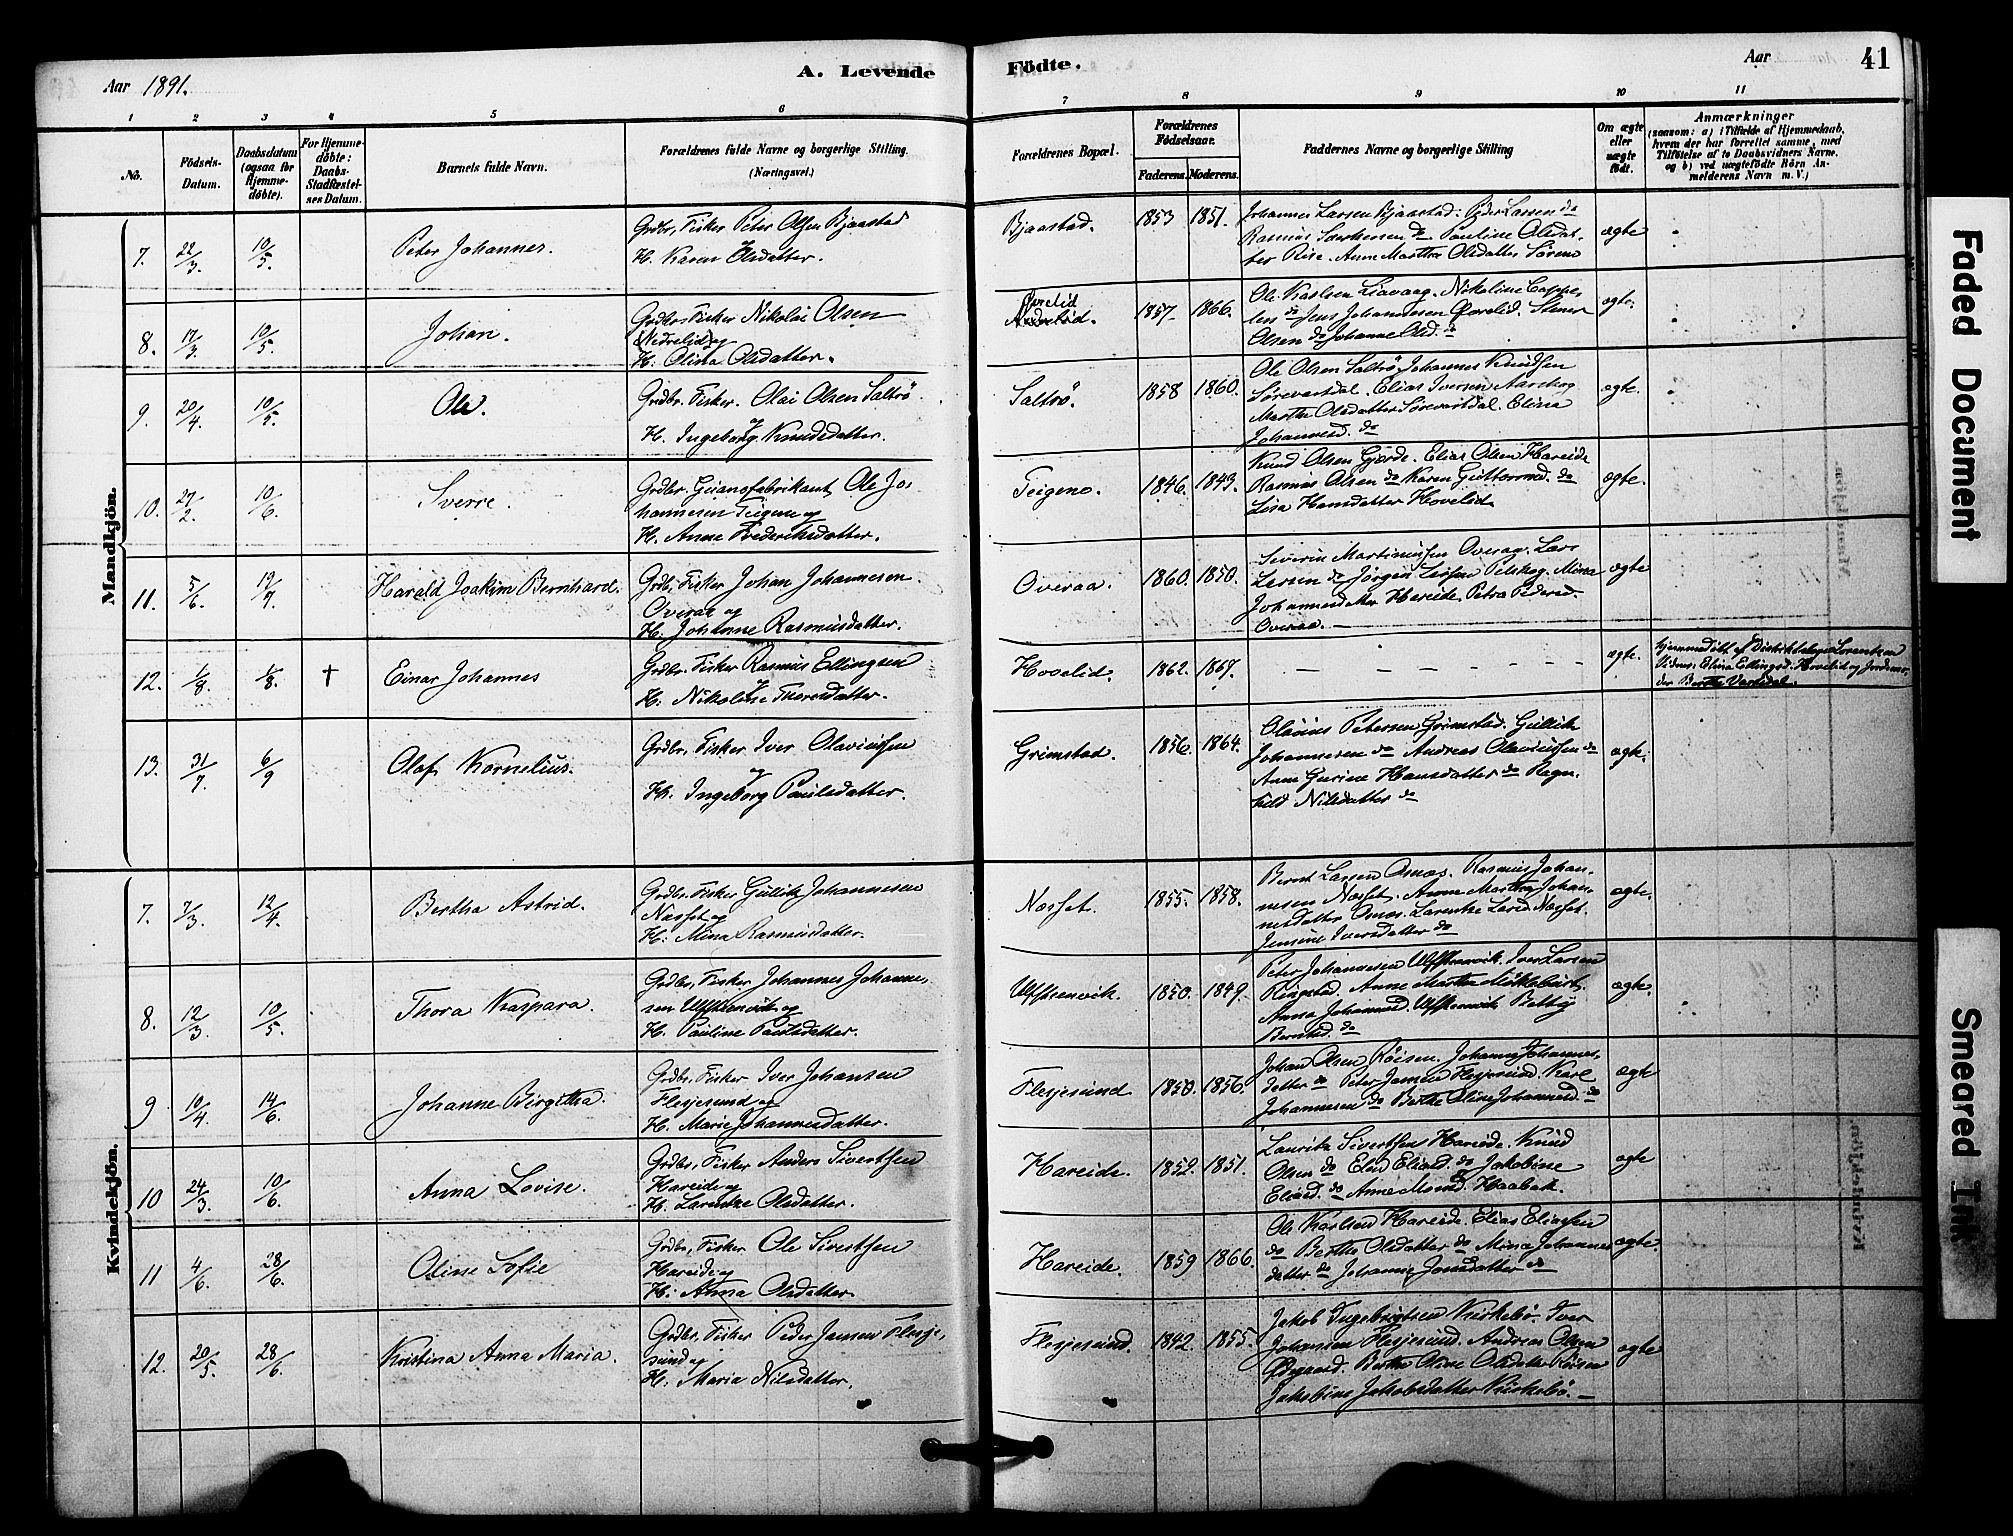 Aar 1891.
A. Levende
Födte.
Aar
41
1 2 3 4 5 6 7 8 9 10 11
No.
Födsels-
Datum.
Daabsdatum
(ogsaa for
Hjemme-
döbte).
For Hjemme-
döbte:
Daabs-
Stadfæstel-
ses Datum.
Barnets fulde Navn.
Forældrenes fulde Navne og borgerlige Stilling.
(Næringsvei.)
Forældrenes Bopæl.
Forældrenes
Födselsaar.
Faderens. Moderens.
Faddernes Navne og borgerlige Stilling
Om ægte
eller
uægte
födt.
Anmærkninger
(saasom: a) i Tilfælde af Hjemmedaab,
hvem der har forrettet samme, med
Tilföielse af to Daabsvidners Navne.
og b) ved uægtefödte Börn An-
melderens Navn m. V.)
Mandkjön.
7. 22/3 10/5 Peter Johannes.
Grdbr, Fisker Peter Olsen Bjaastad
H. Karen Olsdatter.
Bjaastad. 1853 1851.
Johannes Larsen Bjaastad. Peder Larsen do
Rasmus do Pauline Olsdat-
ter Rise. Anne Martha Olsdatter
ægte
8. 17/3 10/5 Johan.
Grdbr. Fisker Nikolai Olsen
Nedrelid og
H. Olina Olsdatter.
Øvrelid
1857 1866.
Ole Karlsen Liavaag. Nikoline
do Jens Johannesen Øvrelid. Stener
Olsen do Johanne Olsd. do
ægte.
9. 20/4 10/5 Ole.
Grdbr. Fisker. Olai Olsen Saltrö
og
H. Ingeborg Knudsdatter.
Saltrö. 1858 1860.
Ole Olsen Saltrö, Johannes Knudsen
Sörevartdal. Elias Iversen Aarskog
Martha Olsdatter Sörevartdal. Elina
Johannesd. do
ægte.
10. 27/2 10/6 Sverre.
Grdbr. Guanofabrikant Ole Jo-
hannesen Teigene og
H. Anne Frederiksdatter.
Teigene. 1846. 1843.
Knud Olsen Gjerde. Elias Olsen Hareide
Rasmus Olsen do Karen Guttormsd. do
Lisa Hansdatter Hovelid.
ægte.
11. 5/6 19/7 Harald Joakim Bernhard.
Grdb. Fisker Johan Johannesen
Overaa og
H. Johanne Rasmusdatter.
Overaa. 1860. 1850.
Severin Martinussen Overaa. Lars
Larsen do Jörgen Pilskog. Mina
Johannesdatter Hareide. Petra Pedersd.
Overaa. —
ægte
12. 1/8 1/8. † Einar Johannes
Grdbr. Fisker Rasmus Ellingsen
og
H. Nikoline Thoresdatter.
Hovelid. 1862. 1867.
— — — — — — —
ægte.
Hjemmedöbt af Distriktslæge Lorentzen
Vidner: Elina Ellingsd. Hovelid og Jordemo-
der Berthe Vartdal.
13. 31/7 6/9 Olaf Kornelius.
Grdbr, Fisker Iver Olaviusen
og
H. Ingeborg Paulsdatter.
Grimstad. 1856. 1864.
Olavius Petersen Grimstad. Gullik
Johannesen do Andreas Olaviussen do
Anne Gurine Hansdatter do Ragn-
hild Nilsdatter do
ægte.
Kvindekjön.
7. 7/3 12/4 Bertha Astrid.
Grdbr. Fisker Gullik Johannesen
Næsset og
H: Mina Rasmusdatter.
Næsset. 1855. 1858.
Bernt Larsen Osnes. Rasmus Johan-
nesen Næsset. Anne Martha Johan-
nesdatter Osnes. Larentze Larsd. Næsset.
Jensine Iversdatter do
ægte.
8. 12/3 10/5. Thora Kaspara.
Grdbr, Fisker Johannes Johanne-
sen Ulfstenvik og
H. Pauline Paulsdatter.
Ulfstenvik. 1850. 1849.
Peter Johannesen Ulfstenvik. Iver Larsen
Ringstad. Anne Martha Möklebust.
Anna Johannesd. Ulfstenvik
Berntsd. do
ægte.
9 10/4 14/6. Johanne Birgitha.
Grdbr, Fisker Iver Johansen
Flesjesund og
H. Marie Johannesdatter.
Flesjesund 1850. 1856.
Johan Olsen Röisen. Johanne Johannes-
datter do Peter Jansen Flesjesund. Karl
Johannesen do Berthe Oline Johannesd. do
ægte
10 24/3. 10/6. Anna Lovise.
Grdbr, Fisker Anders Sivertsen
Hareide og
H. Larentze Olsdatter.
Hareide. 1852. 1851.
Lauritz Sivertsen Hareide. Knud
Olsen do Eliasd. do Jakobine
Eliasd. do Anne Monsd. Haabak.
ægte
11 4/6. 28/6. Oline Sofie
Grdbr, Fisker Ole Sivertsen
Hareide og
H: Anna Olsdatter.
Hareide. 1859 1866.
Ole Karlsen Hareide. Elias Eliassen
do Berthe Olsdatter do Mina Johannes-
datter do Johanne Jonsdatter do
ægte.
12. 20/5. 28/6. Kristina Anna Maria.
Grdbr, Fisker Peder Jansen Flesje-
sund og
H. Maria Nilsdatter.
Flesjesund. 1842. 1855.
Jakob Ingebrigtsen Kirkebö. Iver
Johansen Flesjesund. Andreas Olsen
Ødegaard. Berthe Oline Olsdatter Röisen
Jakobine Jakobsdatter Kirkebö. —
ægte
Faded Document
Smeared Ink